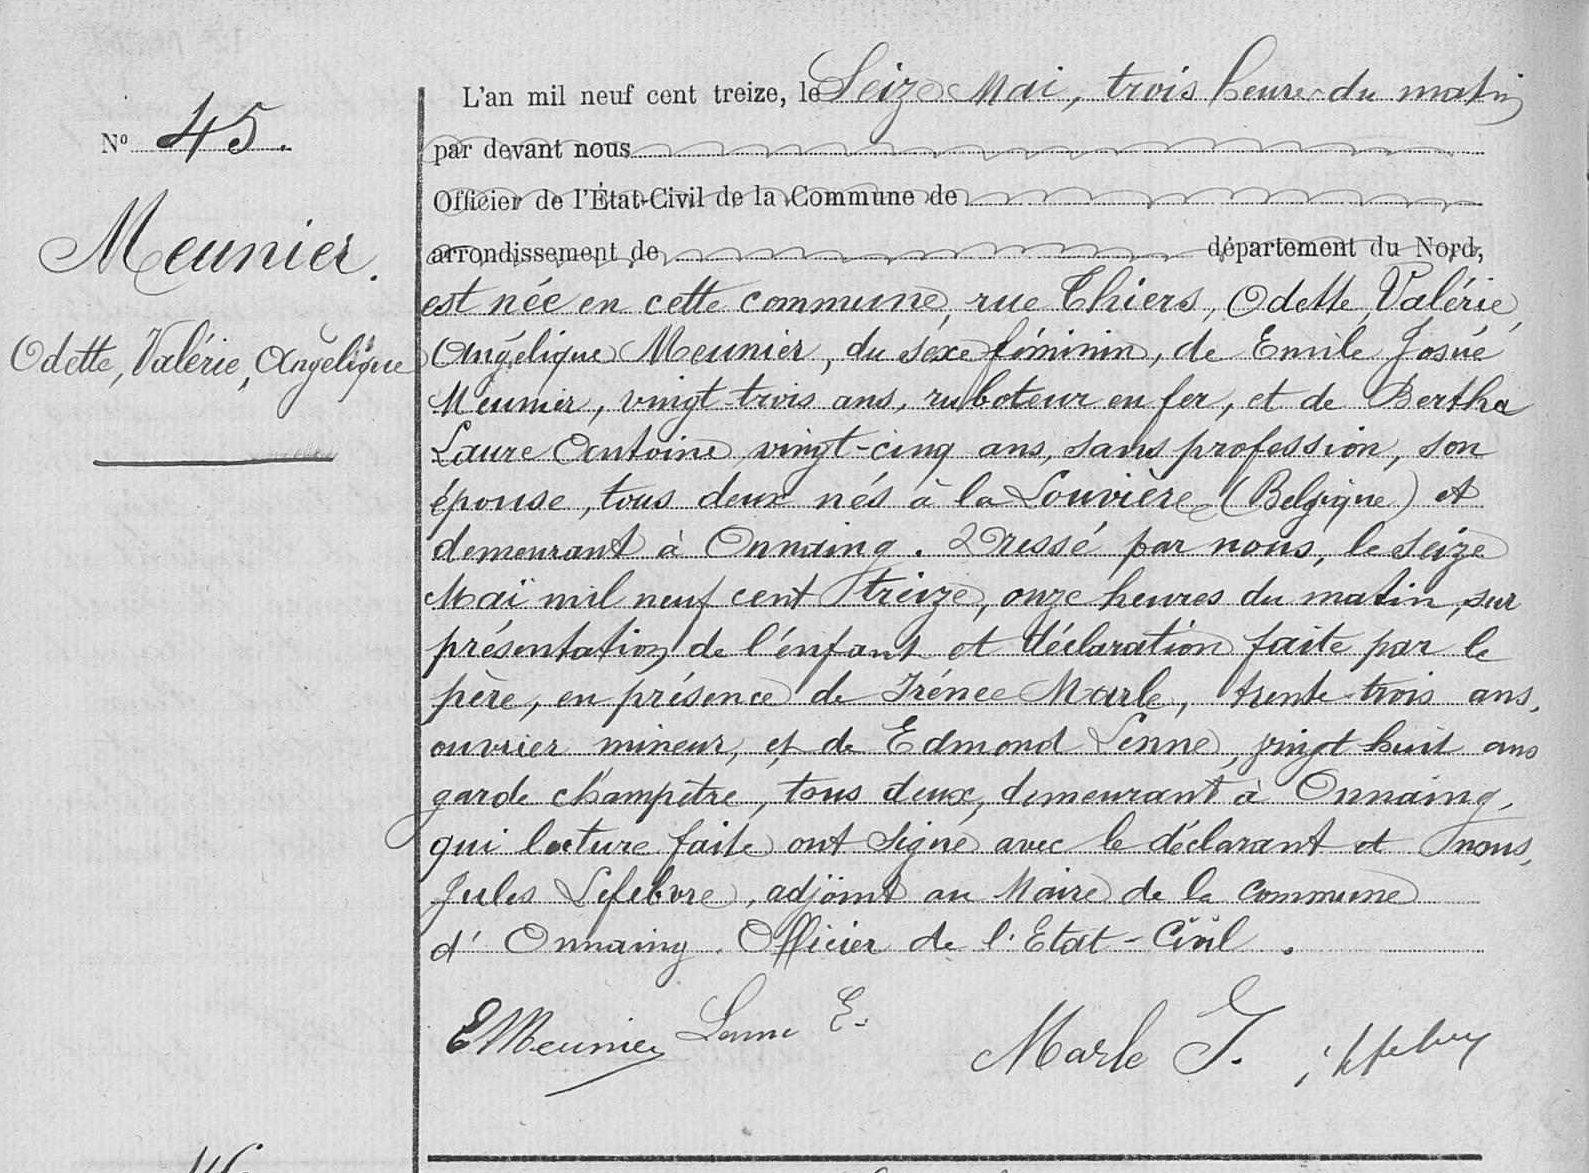 Nº 45.
Meunier.
Odette, Valérie, Angélique
L'an mil neuf cent treize, le Seize Mai, trois heures du matin
par devant nous
Officier de l'État-Civil de la Commune de
arrondissement de département du Nord,
est née en cette commune, rue Thiers, Odette, Valérie,
Angélique Meunier, du sexe féminin, de Emile Josué
Meunier, vingt-trois ans, raboteur en fer, et de Bertha
Laure Antoine, vingt-cinq ans, sans profession, son
épouse, tous deux nés à la Louvière (Belgique) et
demeurant à Onnaing. Dressé par nous, le seize
Maï mil neuf cent treize, onze heures du matin, sur
présentation de l'enfant et déclaration faite par le
père, en présence de Irénée Marle, trente-trois ans,
ouvrier mineur, et de Edmond Lenne, vingt huit ans
garde champêtre, tous deux, demeurant à Onnaing,
qui lecture faite ont signé avec le déclarant et nous,
Jules Lefebvre, adjoint au Maire de la commune
d'Onnaing. Officier de l'Etat-Civil.
E Meunier Lenne E. Marle I.